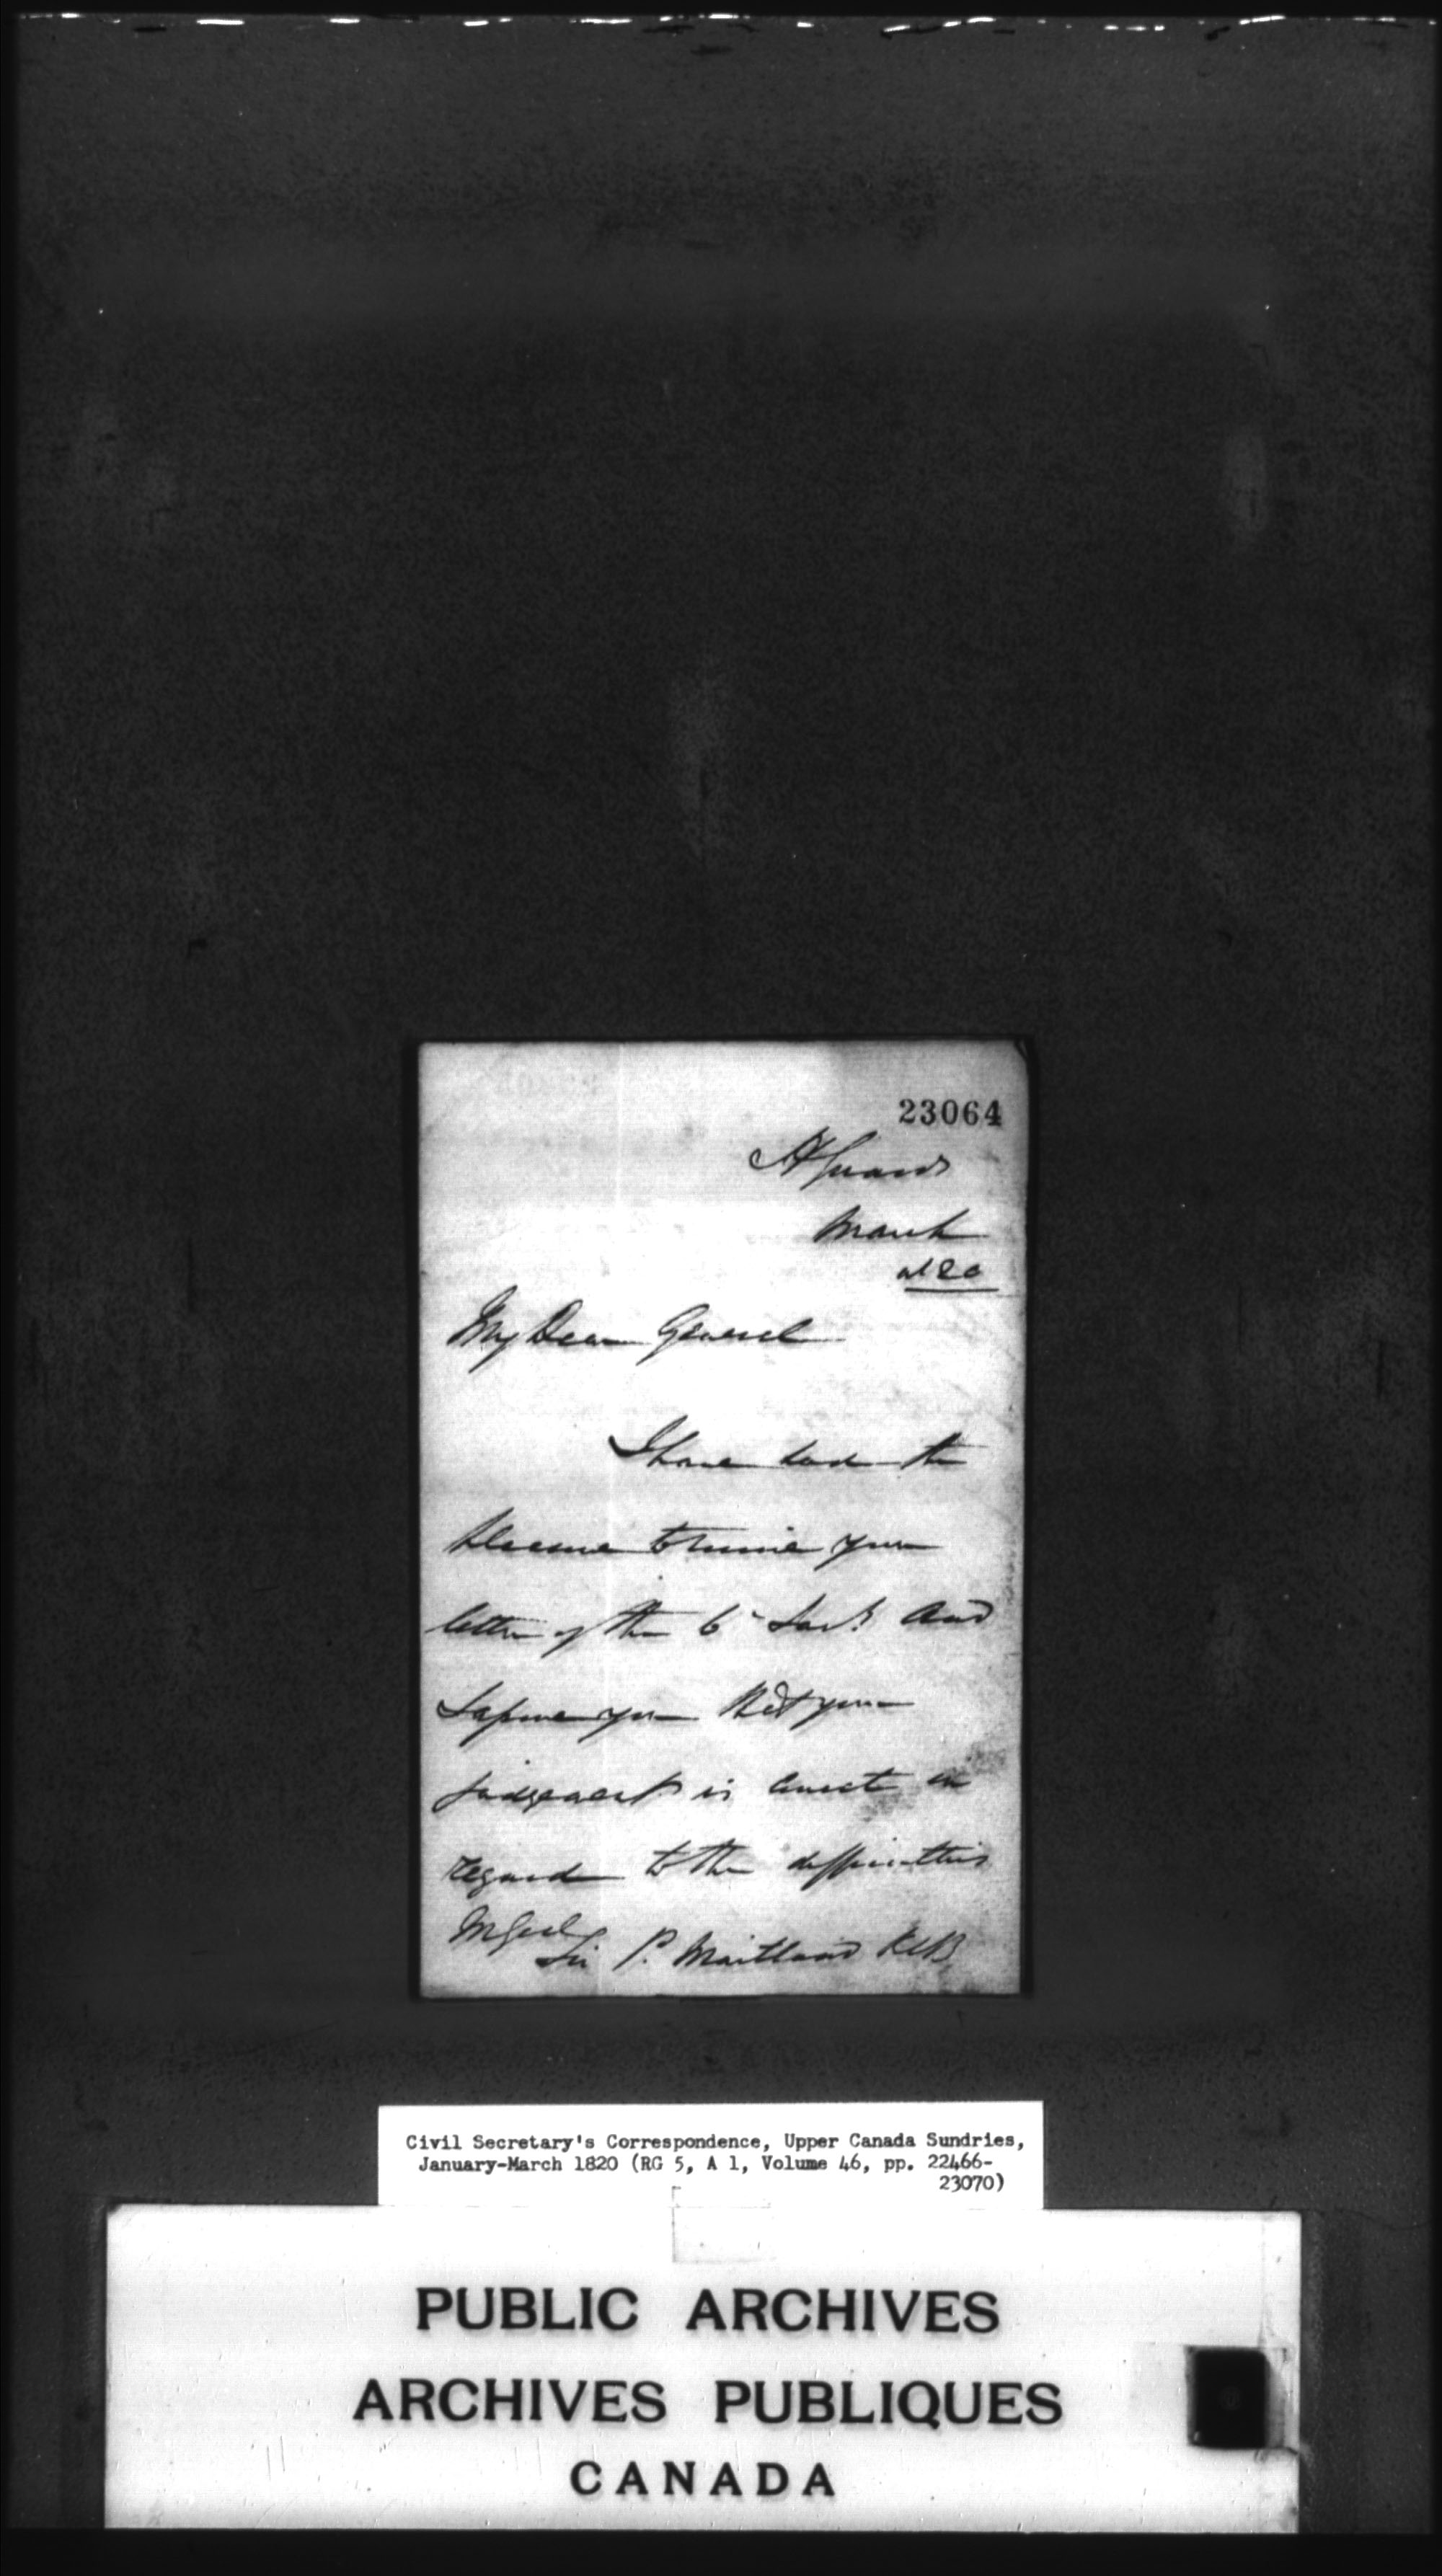 23064
H Guards
March
1820
My Dear General
I have had the
pleasure to receive your
letter of the 6 Jan.y and
I assure you that your
judgement is correct in
regard to the difficulties
M Genl
Sir P. Maitland KCB
Civil Secretary's Correspondence, Upper Canada Sundries,
January-March 1820 (RG 5, A 1, Volume 46, pp. 22466-
23070)
PUBLIC ARCHIVES
ARCHIVES PUBLIQUES
CANADA